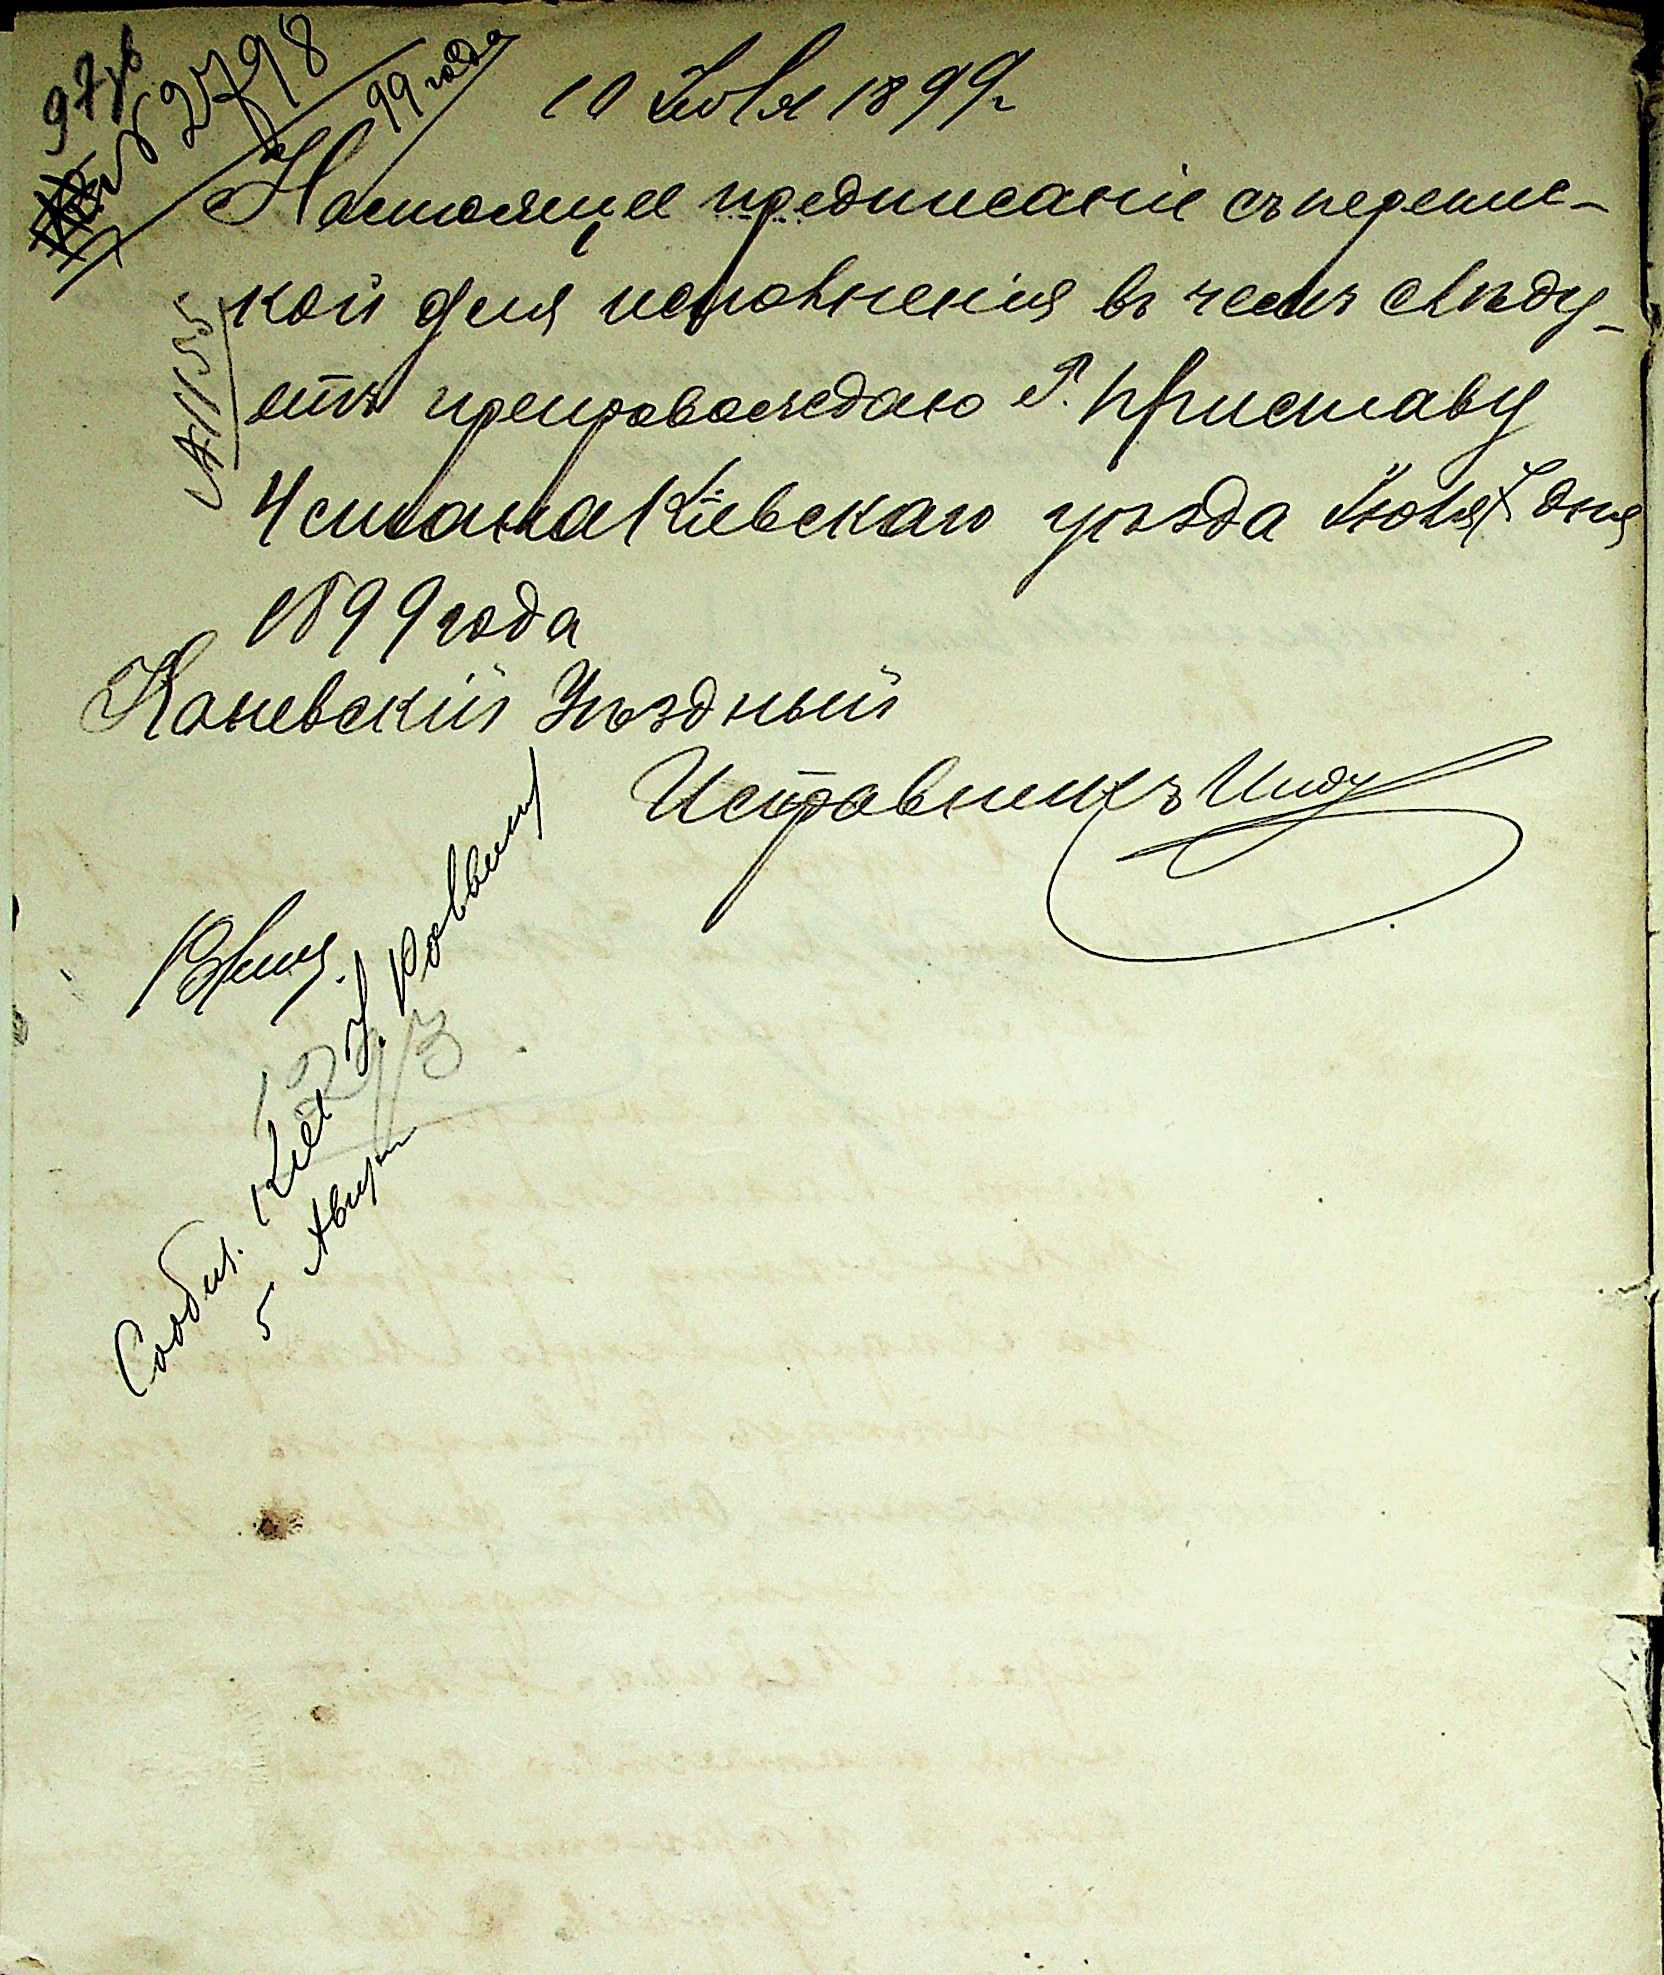 № 2798
99 года
10 Июля 1899 г.
Настоящее предписаніе съ перепис-
кой для исполненія въ чемъ слѣду-
етъ препровождаю Г. Приставу
4 стана Кіевскаго уѣзда Июля дня
1899 года
Каневскій Уѣздный
Исправникъ
Сообщ.
5 Августа